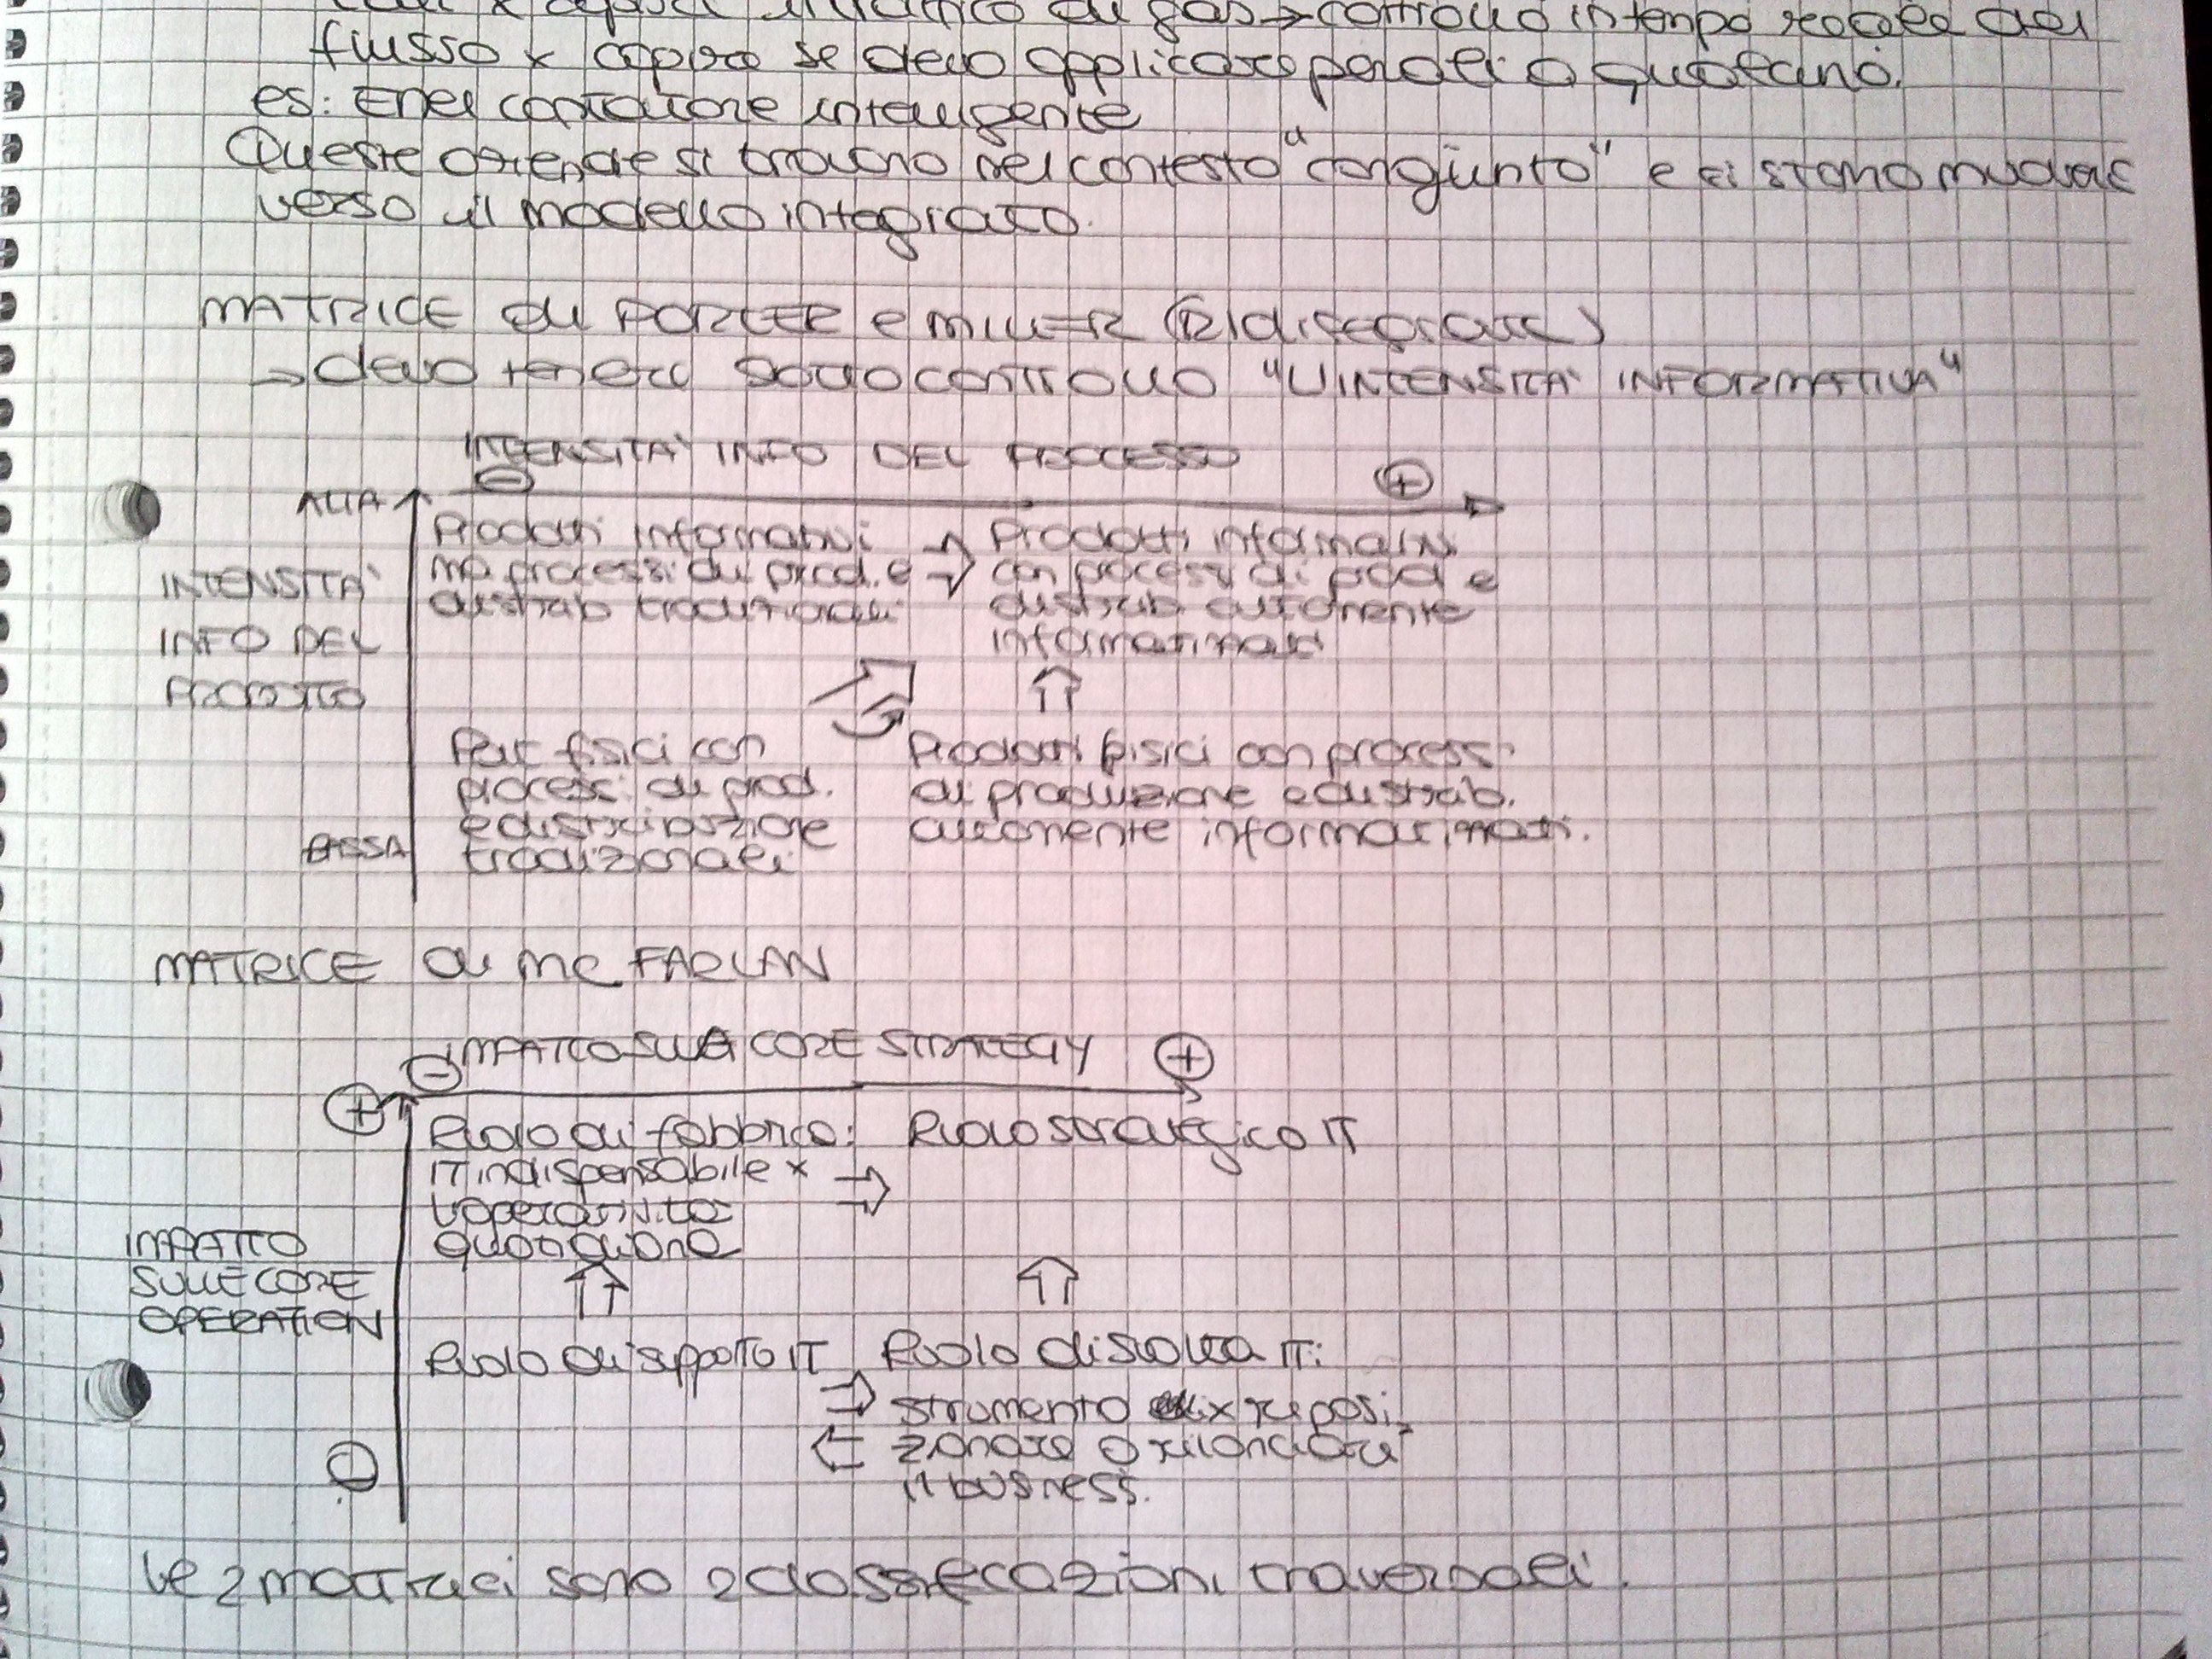 di gas → controllo in tempo reale del
flusso x capire se devo applicare penali o qualcuno.
es: Enel contatore intelligente
Queste aziende si trovano nel contesto "congiunto" e si stanno muovendo
verso il modello integrato.
MATRICE di PORTER e MILLER (Ridisegnare)
→ devo tenere sottocontrollo "L'INTENSITA' INFORMATIVA"
INTENSITA' INFO DEL PROCESSO
⊖ ⊕
ALTA
Prodotti informativi
ma processi di prod. e
distrib tradizionali
Prodotti informativi
con processi di prod e
distrib. altamente
informatizzati
INTENSITA'
INFO DEL
PRODOTTO
fisici con
processi di prod.
e distribuzione
tradizionali
Prodotti fisici con processi
di produzione e distrib.
altamente informatizzati.
BASSA
MATRICE di MC FARLAN
IMPATTO SULLA CORE STRATEGY
⊖ ⊕
⊕
Ruolo di fabbrica:
IT indispensabile x
l'operatività
quotidiana
Ruolo strategico IT
IMPATTO
SULLE CORE
OPERATION
Ruolo di supporto IT
Ruolo di svolta IT:
strumento x reposi-
zionare o rilanciare
il business.
⊖
Le 2 matrici sono 2 classificazioni traversali.